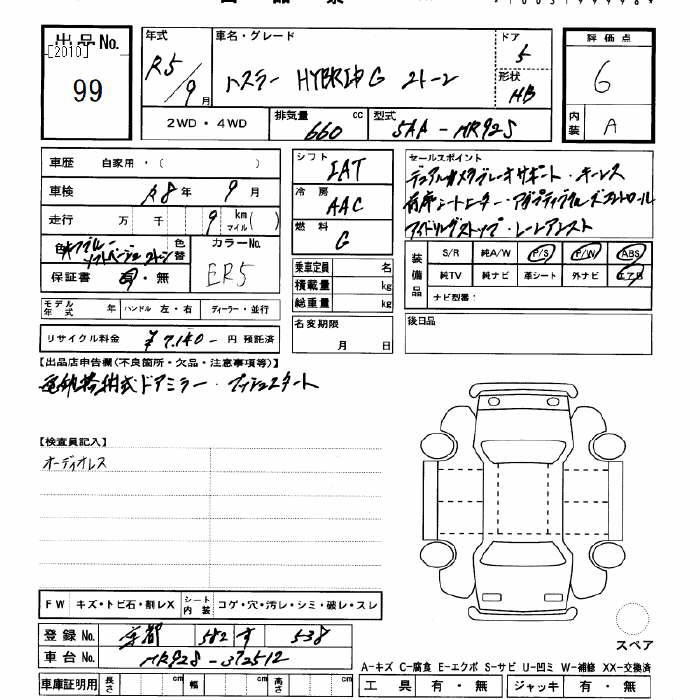 出品No.
[2010]
99
年式
R5/9月
車名・グレード
ハスラー HYBRID G 2トーン
ドア
5
形状
HB
評価点
6
内装
A
2WD・4WD
排気量
660
cc
型式
5AA-MR92S
車歴 自家用・( )
車検 R8年 9月
走行 万 千 9 km マイル ( )
色 ソフトベージュ2トーン
色替
カラーNo.
保証書 有・無
ER5
モデル年式 年 ハンドル 左・右 ディーラー・並行
リサイクル料金 ¥7,140- 円 預託済
シフト
IAT
冷房
AAC
燃料
G
乗車定員 名
積載量 kg
総重量 kg
名変期限
月 日
セールスポイント
デュアルカメラブレーキサポート・キーレス
前席シートヒーター・アダプティブクルーズコントロール
アイドリングストップ・レーンアシスト
装備品
S/R 純A/W P/S P/W ABS
純TV 純ナビ 革シート 外ナビ エアB
ナビ型番:
後日品
【出品店申告欄(不良箇所・欠品・注意事項等)】
電動格納式ドアミラー・プッシュスタート
【検査員記入】
オーディオレス
FW キズ・トビ石・割レX シート内装 コゲ・穴・汚レ・シミ・破レ・スレ
登録No. 京都 582 す 538
車台No. MR92S-372512
車庫証明用 長さ cm 幅 cm 高さ cm
スペア
A-キズ C-腐食 E-エクボ S-サビ U-凹ミ W-補修 XX-交換済
工具 有・無 ジャッキ 有・無